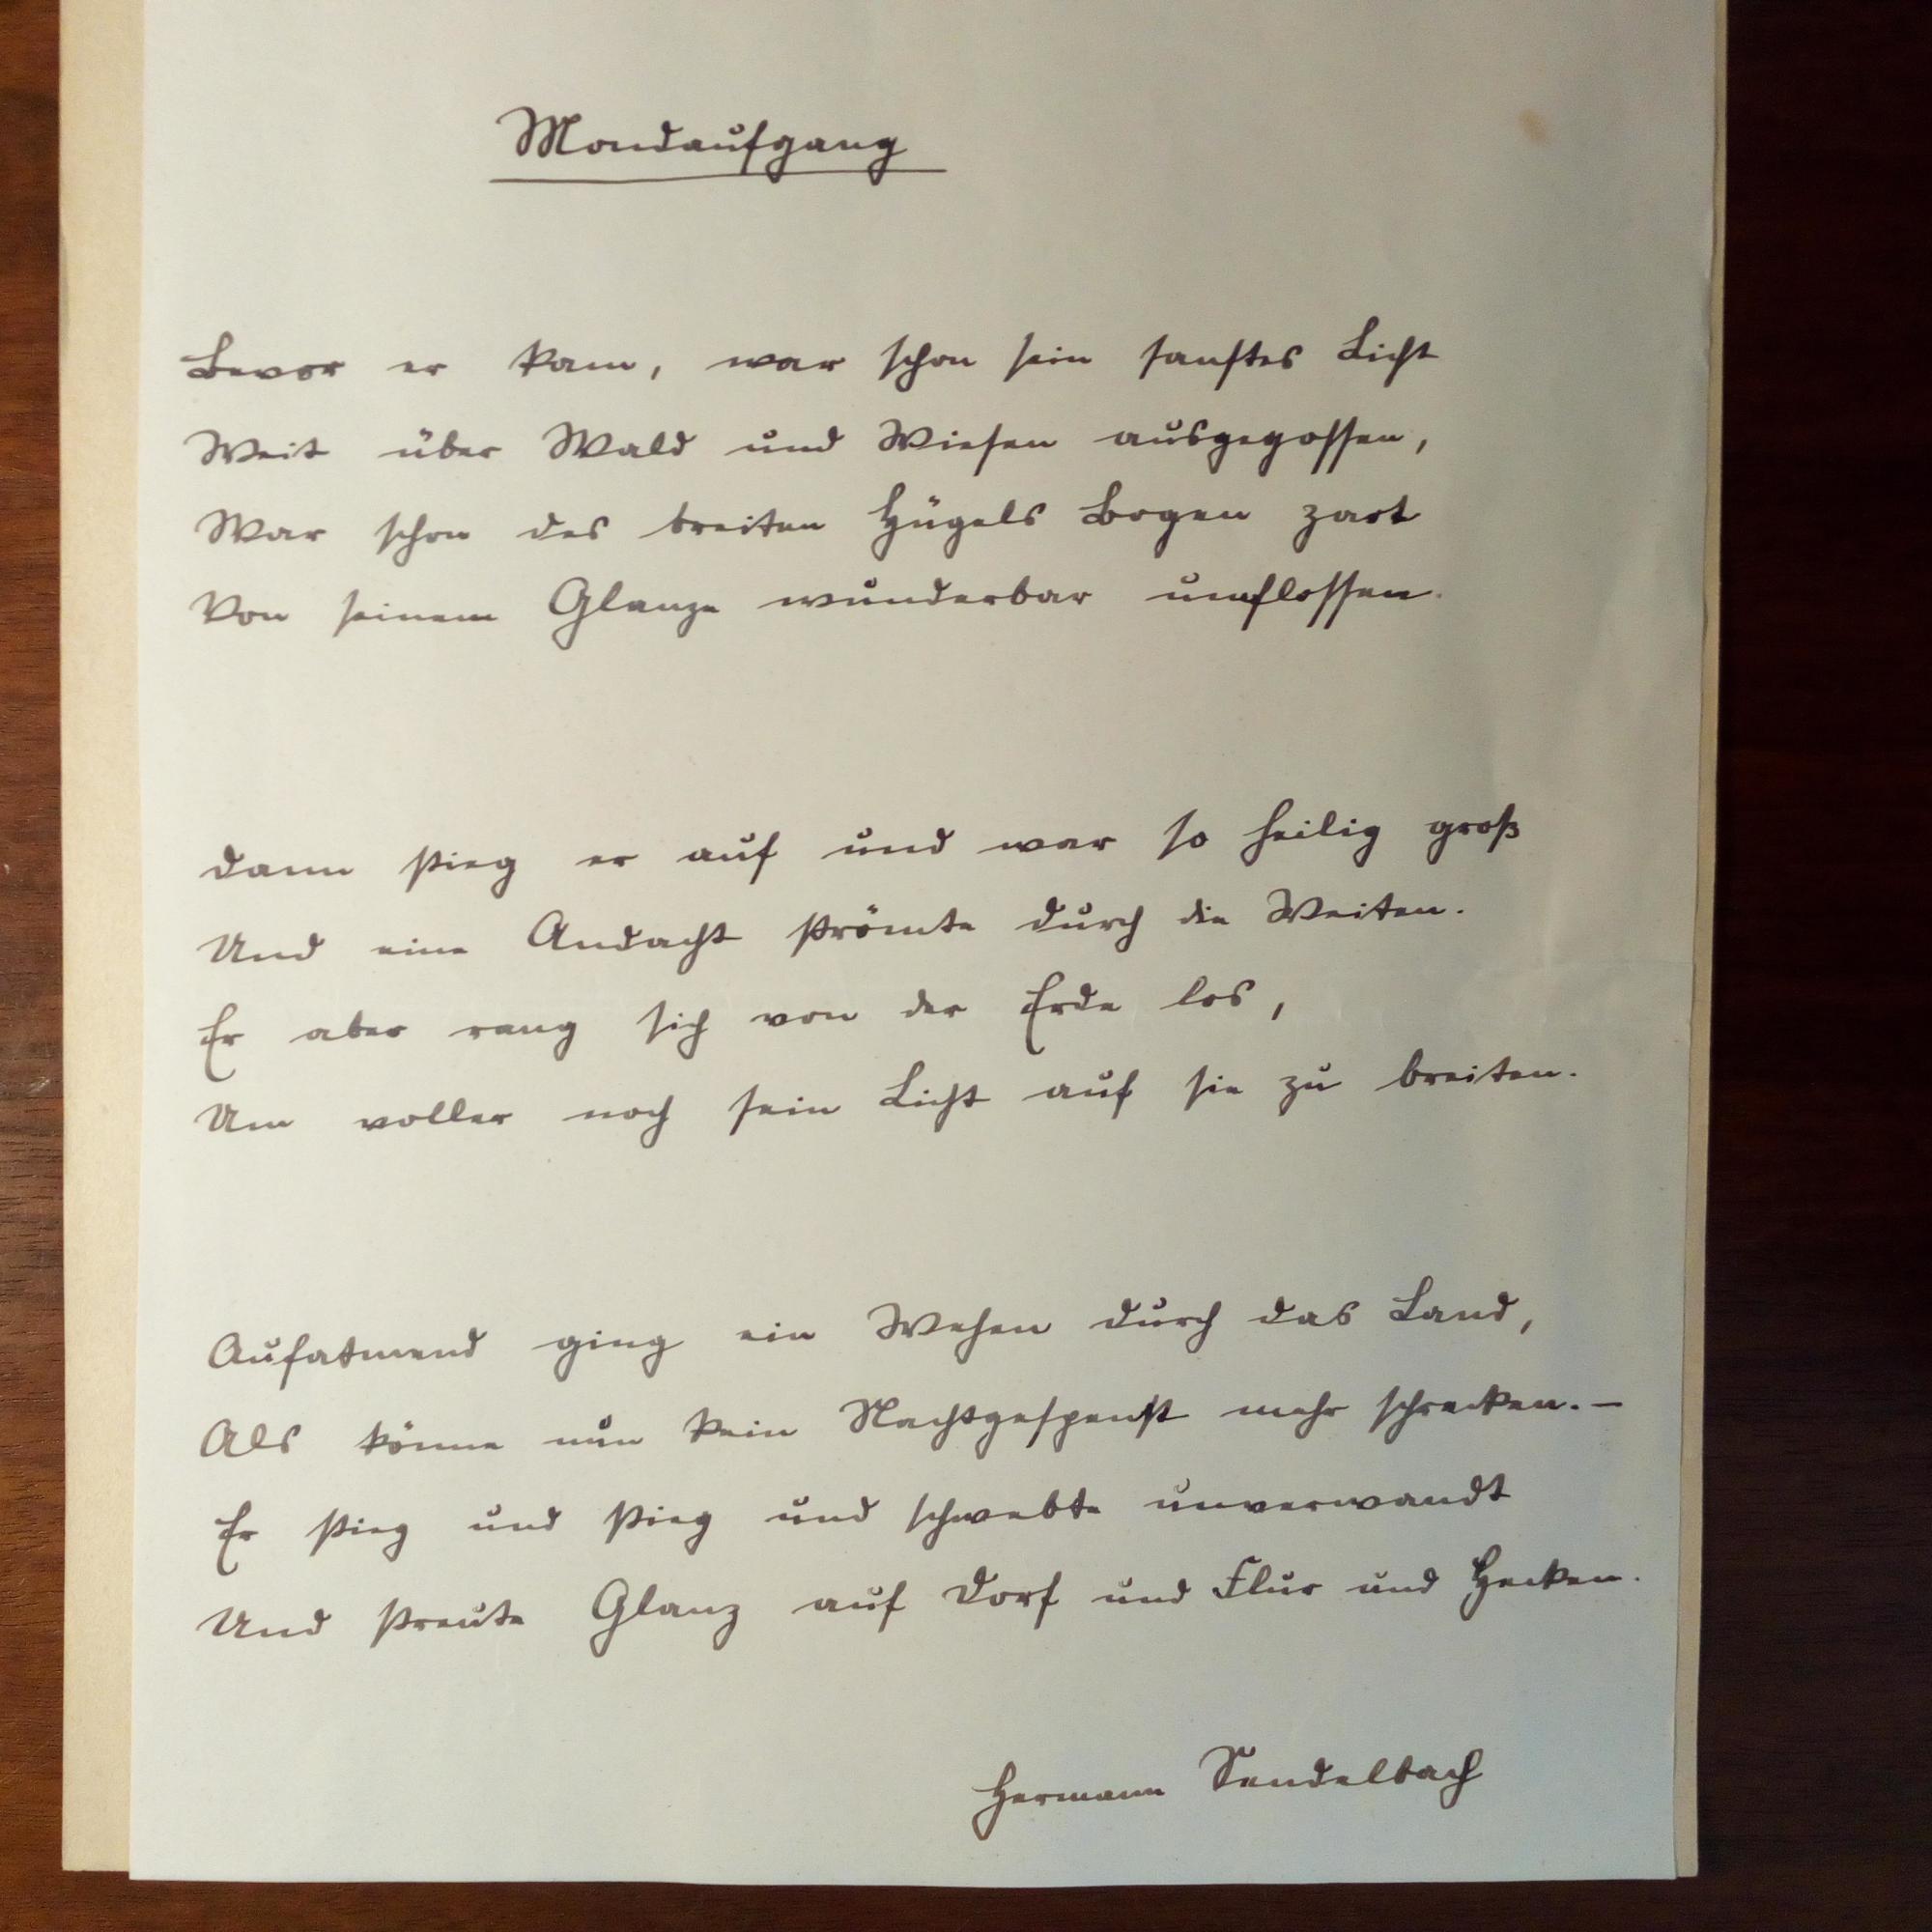 Mondaufgang
Bevor er kam, war schon sein sanftes Licht
Weit über Wald und Wiesen ausgegossen,
War schon des breiten Hügels Bogen zart
Von seinem Glanze wunderbar umflossen.
Dann stieg er auf und war so heilig groß
Und eine Andacht strömte durch die Weiten.
Er aber rang sich von der Erde los,
Um voller noch sein Licht auf sie zu breiten.
Aufatmend ging ein Wehen durch das Land,
Als könne nun kein Nachtgespenst mehr schrecken. –
Er stieg und stieg und schwebte unverwandt
Und streute Glanz auf Dorf und Flur und Hecken.
Hermann Sendelbach